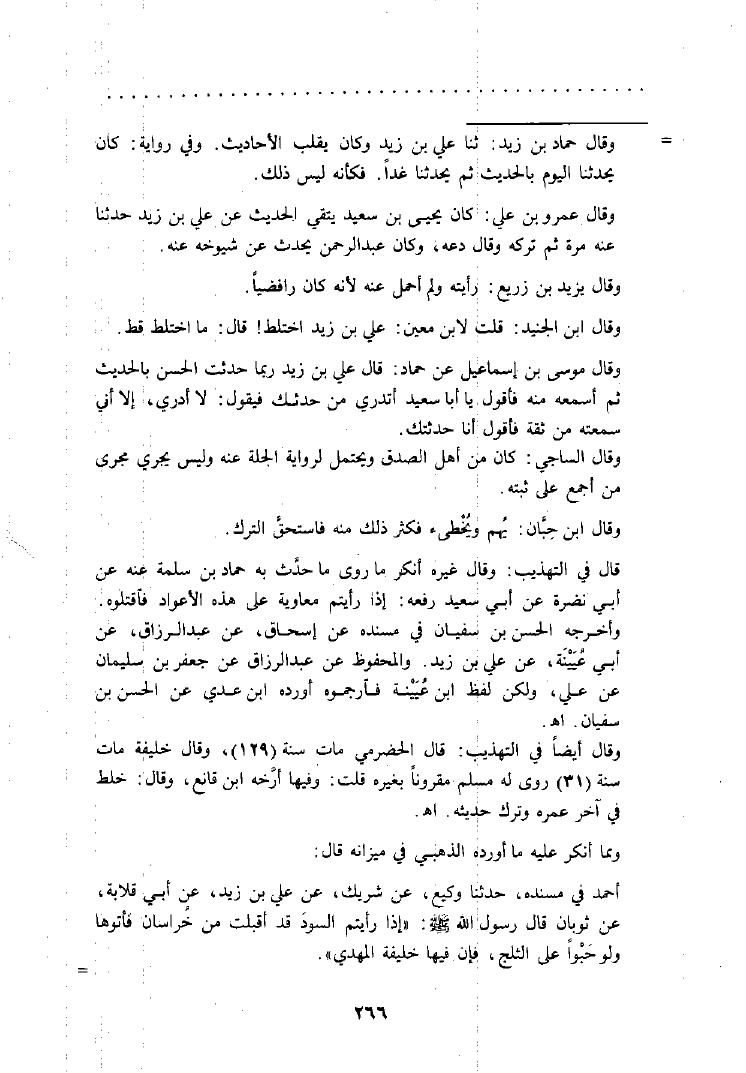 = وقال حماد بن زيد: ثنا علي بن زيد وكان يقلب الأحاديث. وفي رواية: كان
يحدثنا اليوم بالحديث ثم يحدثنا غداً. فكأنه ليس ذلك.
وقال عمرو بن علي: كان يحيى بن سعيد يتقي الحديث عن علي بن زيد حدثنا
عنه مرة ثم تركه وقال دعه، وكان عبدالرحمن يحدث عن شيوخه عنه.
وقال يزيد بن زريع: رأيته ولم أحمل عنه لأنه كان رافضياً.
وقال ابن الجنيد: قلت لابن معين: علي بن زيد اختلط! قال: ما اختلط قط.
وقال موسى بن إسماعيل عن حماد: قال علي بن زيد ربما حدثت الحسن بالحديث
ثم أسمعه منه فأقول يا أبا سعيد أتدري من حدثك فيقول: لا أدري، إلا أني
سمعته من ثقة فأقول أنا حدثتك.
وقال الساجي: كان من أهل الصدق ويحتمل لرواية الجلة عنه وليس يجري مجرى
من أجمع على ثبته.
وقال ابن حِبَّان: يُهم ويُخْطىء فكثر ذلك منه فاستحقَّ الترك.
قال في التهذيب: وقال غيره أنكر ما روى ما حدَّث به حماد بن سلمة عنه عن
أبي نضرة عن أبي سعيد رفعه: إذا رأيتم معاوية على هذه الأعواد فأقتلوه.
وأخرجه الحسن بن سفيان في مسنده عن إسحاق، عن عبدالرزاق، عن
أبي عُيَيْنَة، عن علي بن زيد. والمحفوظ عن عبدالرزاق عن جعفر بن سليمان
عن علي، ولكن لفظ ابن عُيَيْنة فأرجموه أورده ابن عدي عن الحسن بن
سفيان. اهـ.
وقال أيضاً في التهذيب: قال الحضرمي مات سنة (١٢٩)، وقال خليفة مات
سنة (٣١) روى له مسلم مقروناً بغيره قلت: وفيها أرَّخه ابن قانع، وقال: خلط
في آخر عمره وترك حديثه. اهـ.
ومما أنكر عليه ما أورده الذهبي في ميزانه قال:
أحمد في مسنده، حدثنا وكيع، عن شريك، عن علي بن زيد، عن أبي قلابة،
عن ثوبان قال رسول الله ﷺ: «إذا رأيتم السودَ قد أقبلت من خُراسان فأتوها
ولو حَبْواً على الثلج، فإن فيها خليفة المهدي». =
٢٦٦